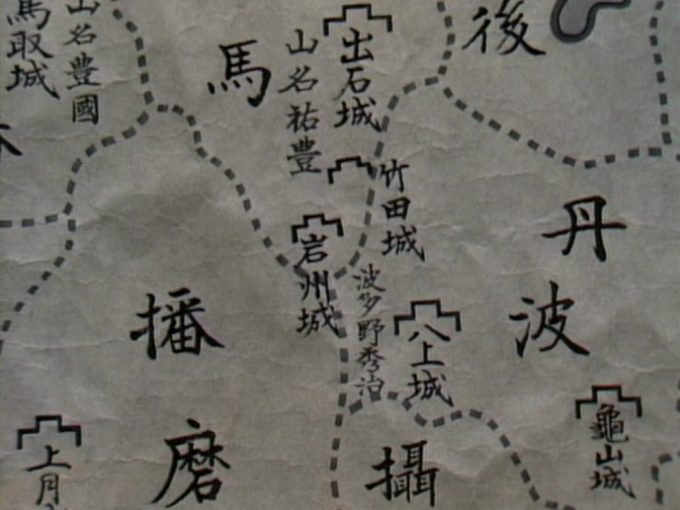 後
丹波
亀山城
八上城
波多野秀治
竹田城
出石城
山名祐豊
岩州城
馬
攝
播磨
山名豊國
馬取城
上月